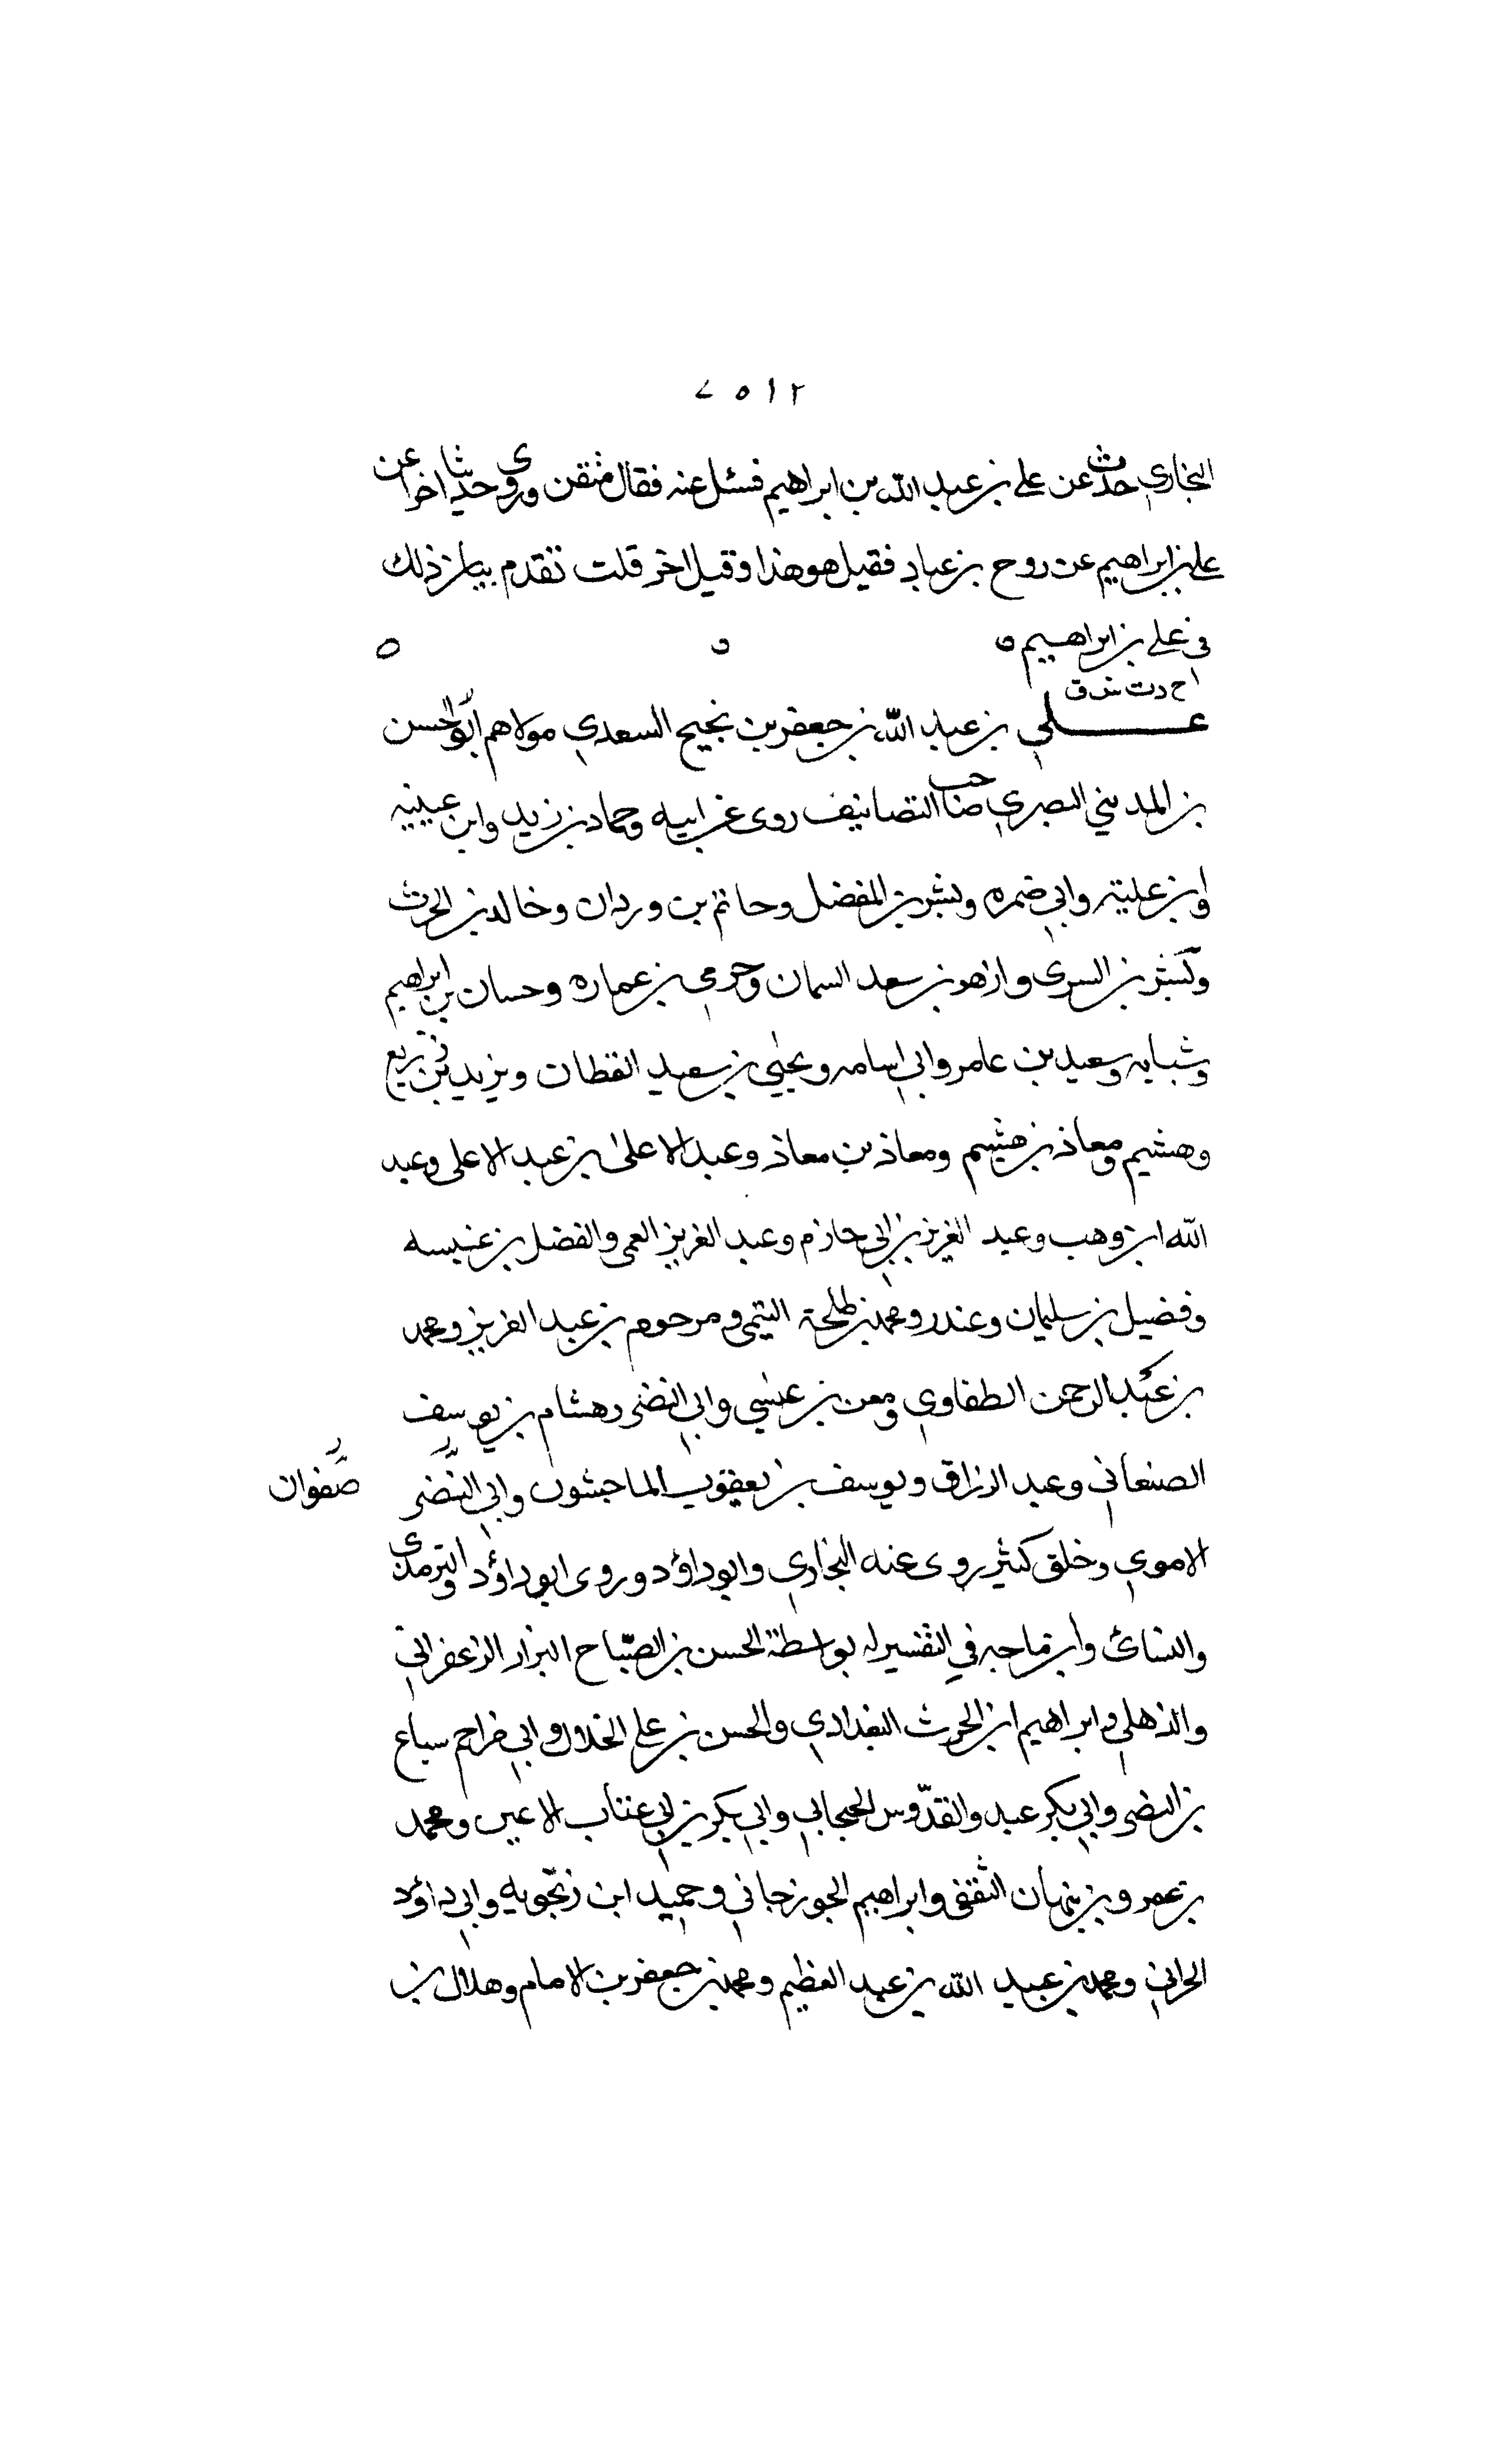 ٢١٥٧
البخاري حدث عن علي بن عبد الله بن ابراهيم فسئل عنه فقال متقن وروى حديثا اخر عن
علي بن ابراهيم عن روح بن عباد فقيل هو هذا وقيل اخر قلت تقدم بيان ذلك
في علي بن ابراهيم ه ه ه
خ د ت س ق
علي بن عبد الله بن جعفر بن نجيح السعدي مولاهم ابو الحسن
بن المديني البصري صاحب التصانيف روى عن ابيه وحماد بن زيد وابن عيينه
وابن علية وابي ضمره وبشر بن المفضل وحاتم بن وردان وخالد بن الحرث
وبشر بن السرى وازهر بن سعد السمان وحرمي بن عماره وحسان بن ابراهيم
وشبابه وسعيد بن عامر وابي اسامه ويحيى بن سعيد القطان ويزيد بن زريع
وهشيم ومعاذ بن هشيم ومعاذ بن معاذ وعبد الاعلى بن عبد الاعلى وعبد
الله ابن وهب وعبد العزيز بن ابي حازم وعبد العزيز العمى والفضل بن عنبسه
وفضيل بن سليمان وغندر ومحمد بن طلحة التيمى ومرحوم بن عبد العزيز ومحمد
بن عبد الرحمن الطفاوي ومعن بن عيسي وابي النضر وهشام بن يوسف
الصنعاني وعبد الرزاق ويوسف بن يعقوب الماجشون وابي النضر صفوان
الاموي وخلق كثير روى عنه البخاري وابو داؤد وروى ابو داؤد والترمذى
والنسائ وابن ماجه في التفسير له بواسطة الحسن بن الصباح البزار الزعفراني
والذهلي وابراهيم ابن الحرث البغدادي والحسن بن علي الخلال وابي مزاحم سباع
بن النضر وابي بكر عبد والقدوس الحبحابي وابي بكر بن ابي عتاب الاعين ومحمد
بن عمرو بن نبهان الثقفى وابراهيم الجوزجاني وحميد ابن زنجويه وابي داؤد
الحراني ومحمد بن عبيد الله بن عبد العظيم ومحمد بن جعفر بن الامام وهلال بن